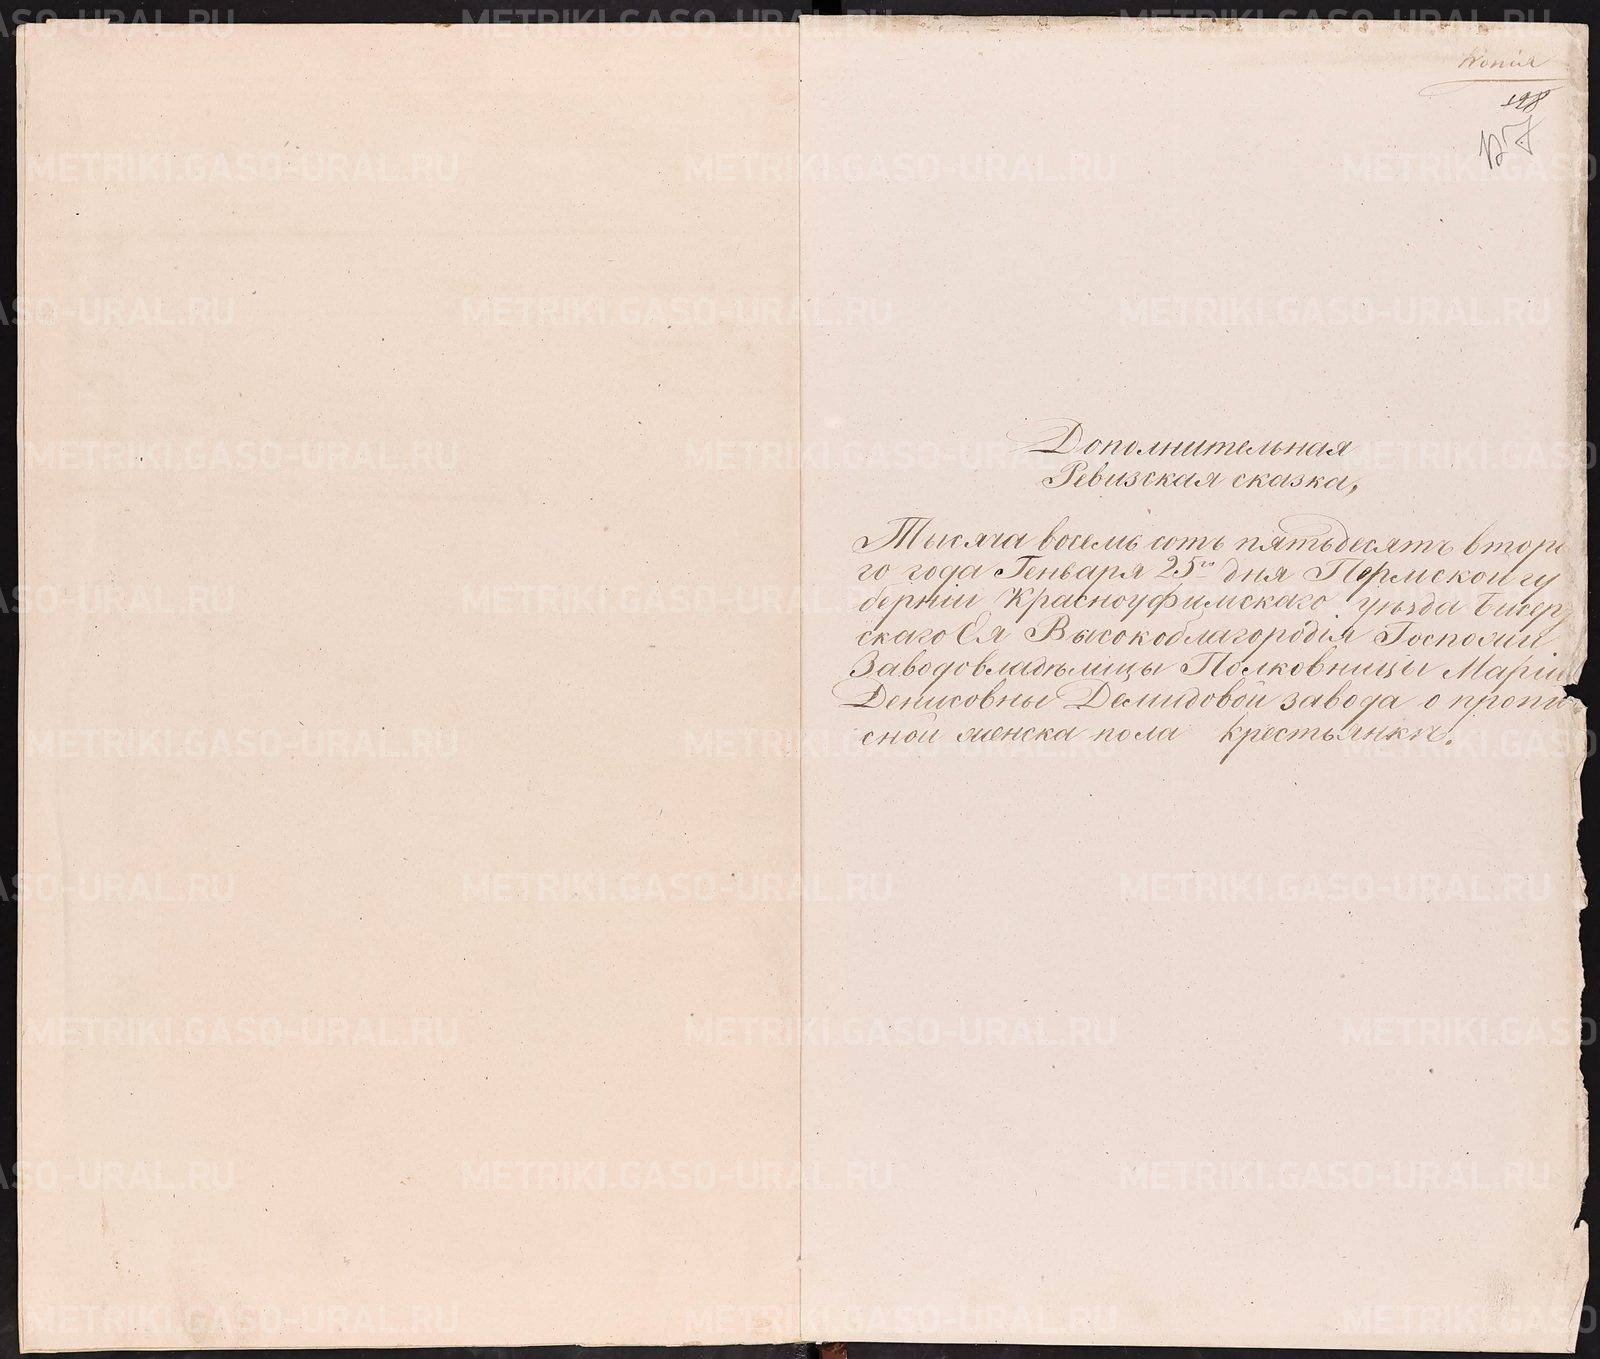 Копія
198
№7
Дополнительная
Ревизская сказка,
Тысяча восемь сотъ пятьдесятъ второ
го года Генваря 25го дня Пермской гу
берніи Красноуфимскаго уѣзда Бисер
скаго Ея Высокоблагородія Госпожи
Заводовладѣлицы Полковницы Маріи
Денисовны Демидовой завода о пропи
сной женска пола крестьянкѣ.